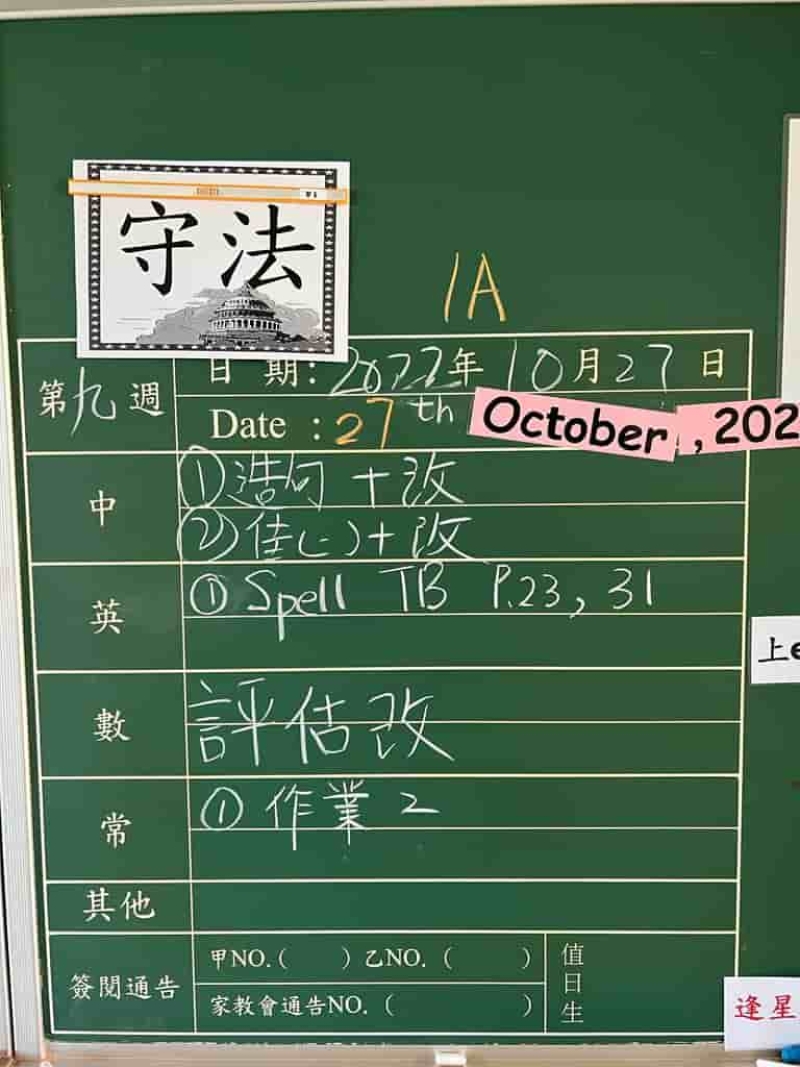 守法
1A
第九週
日期:2022年10月27日
Date :27th October, 202
中
①造句+改
②佳(一)+改
英
①Spell TB P.23, 31
數
評估改
常
①作業2
其他
簽閱通告
甲NO.( )乙NO.( )
家教會通告NO.( )
值日生
上e
逢星